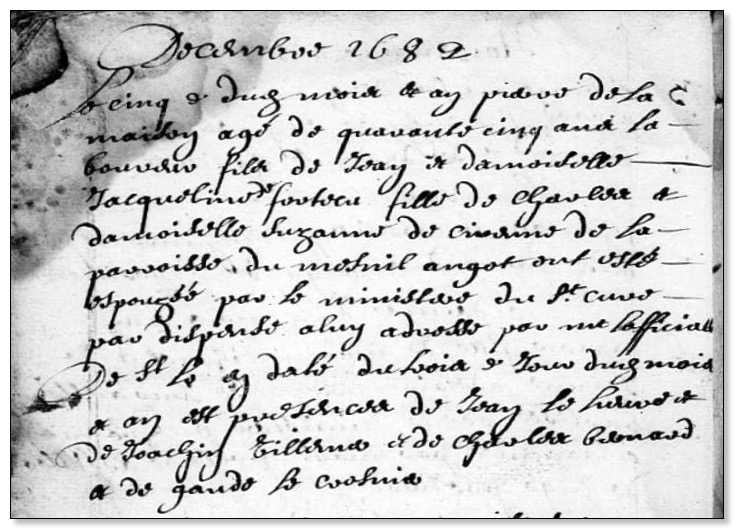 Decembre 1682
Le cinq e dud mois et an pierre de la
maison agé de quarante cinq ans la
boureur fils de Jean et damoiselle
Jacqueline de fontena fille de Charles et
damoiselle Suzanne de de la
parroisse du mesnil angot ont esté
espousés par le ministere du Sr cure
par dispense a luy adresse par mr lofficial
De St Lo en daté du trois e Jour dud mois
et an est presences de Jean le lievre et
de Joachim et de Charles benard
et de gaude le